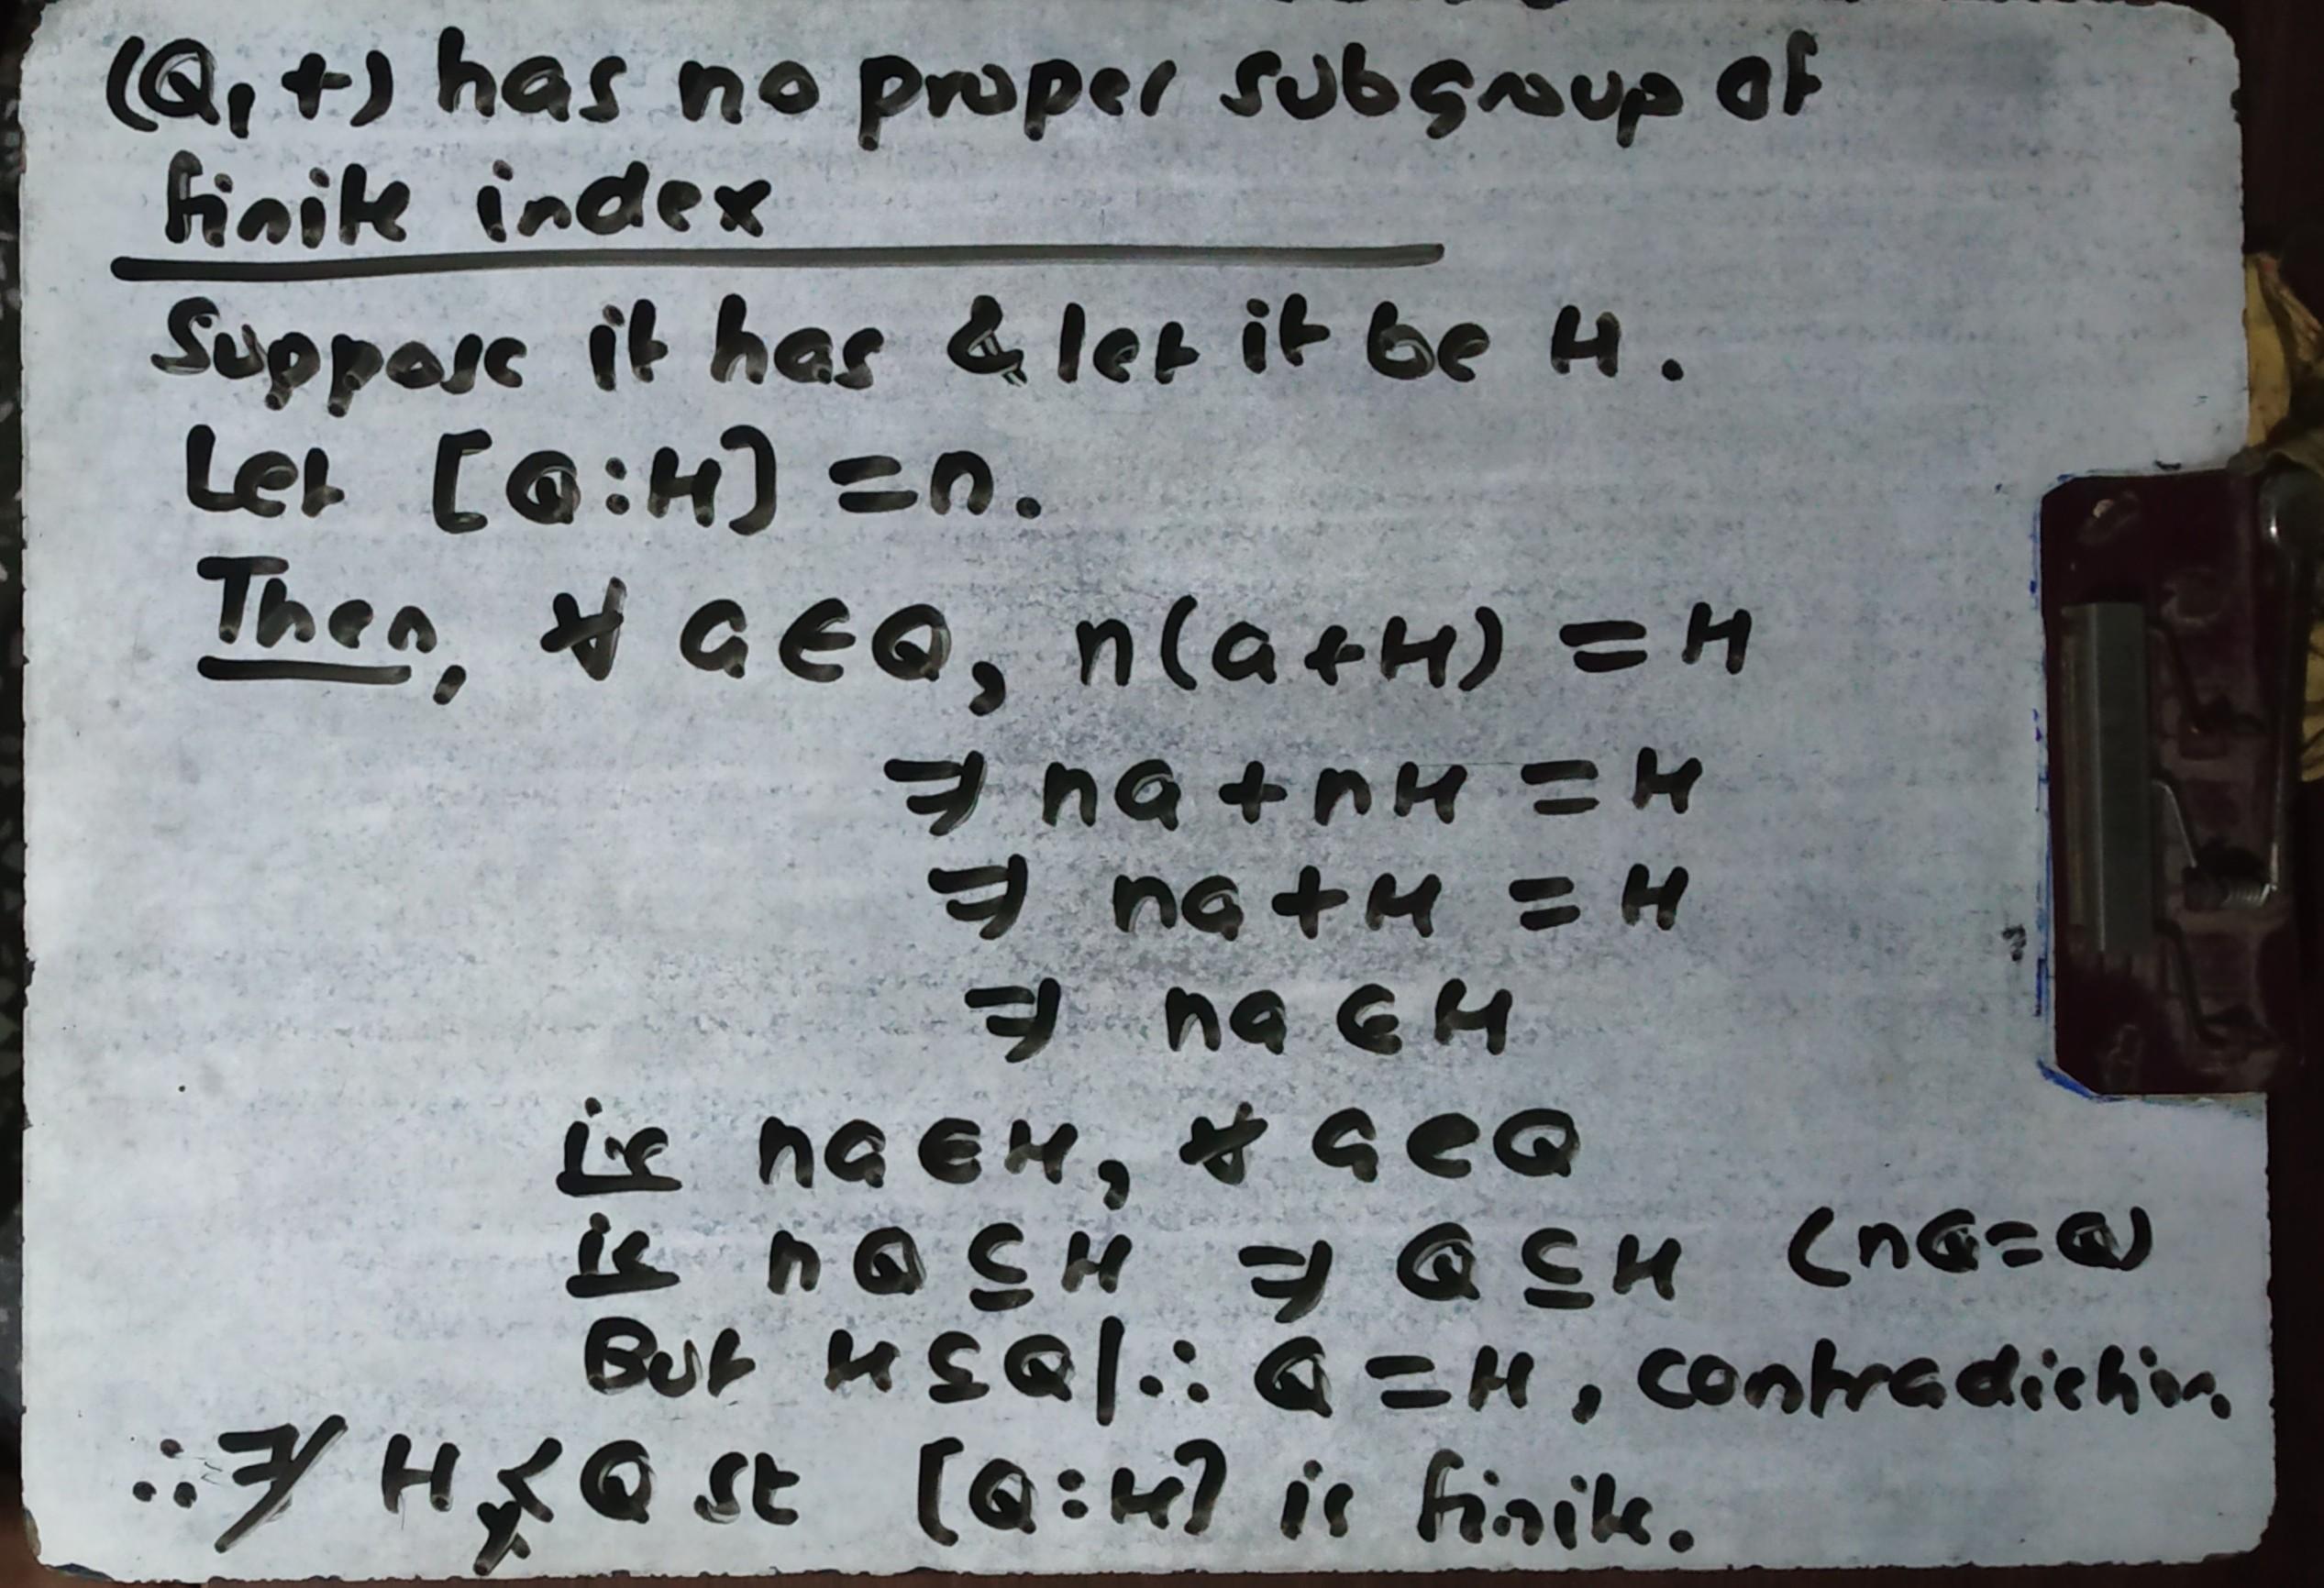 (Q, +) has no proper subgroup of
finite index
Suppose it has & let it be H.
Let [Q:H] = n.
Then, ∀ a∈Q, n(a+H) = H
⇒ na + nH = H
⇒ na + H = H
⇒ na ∈ H
ie na∈H, ∀ a∈Q
ie nQ ⊆ H ⇒ Q ⊆ H (nQ=Q)
But H⊆Q | ∴ Q = H, contradiction
∴ ∄ H ⪇ Q st [Q:H] is finite.